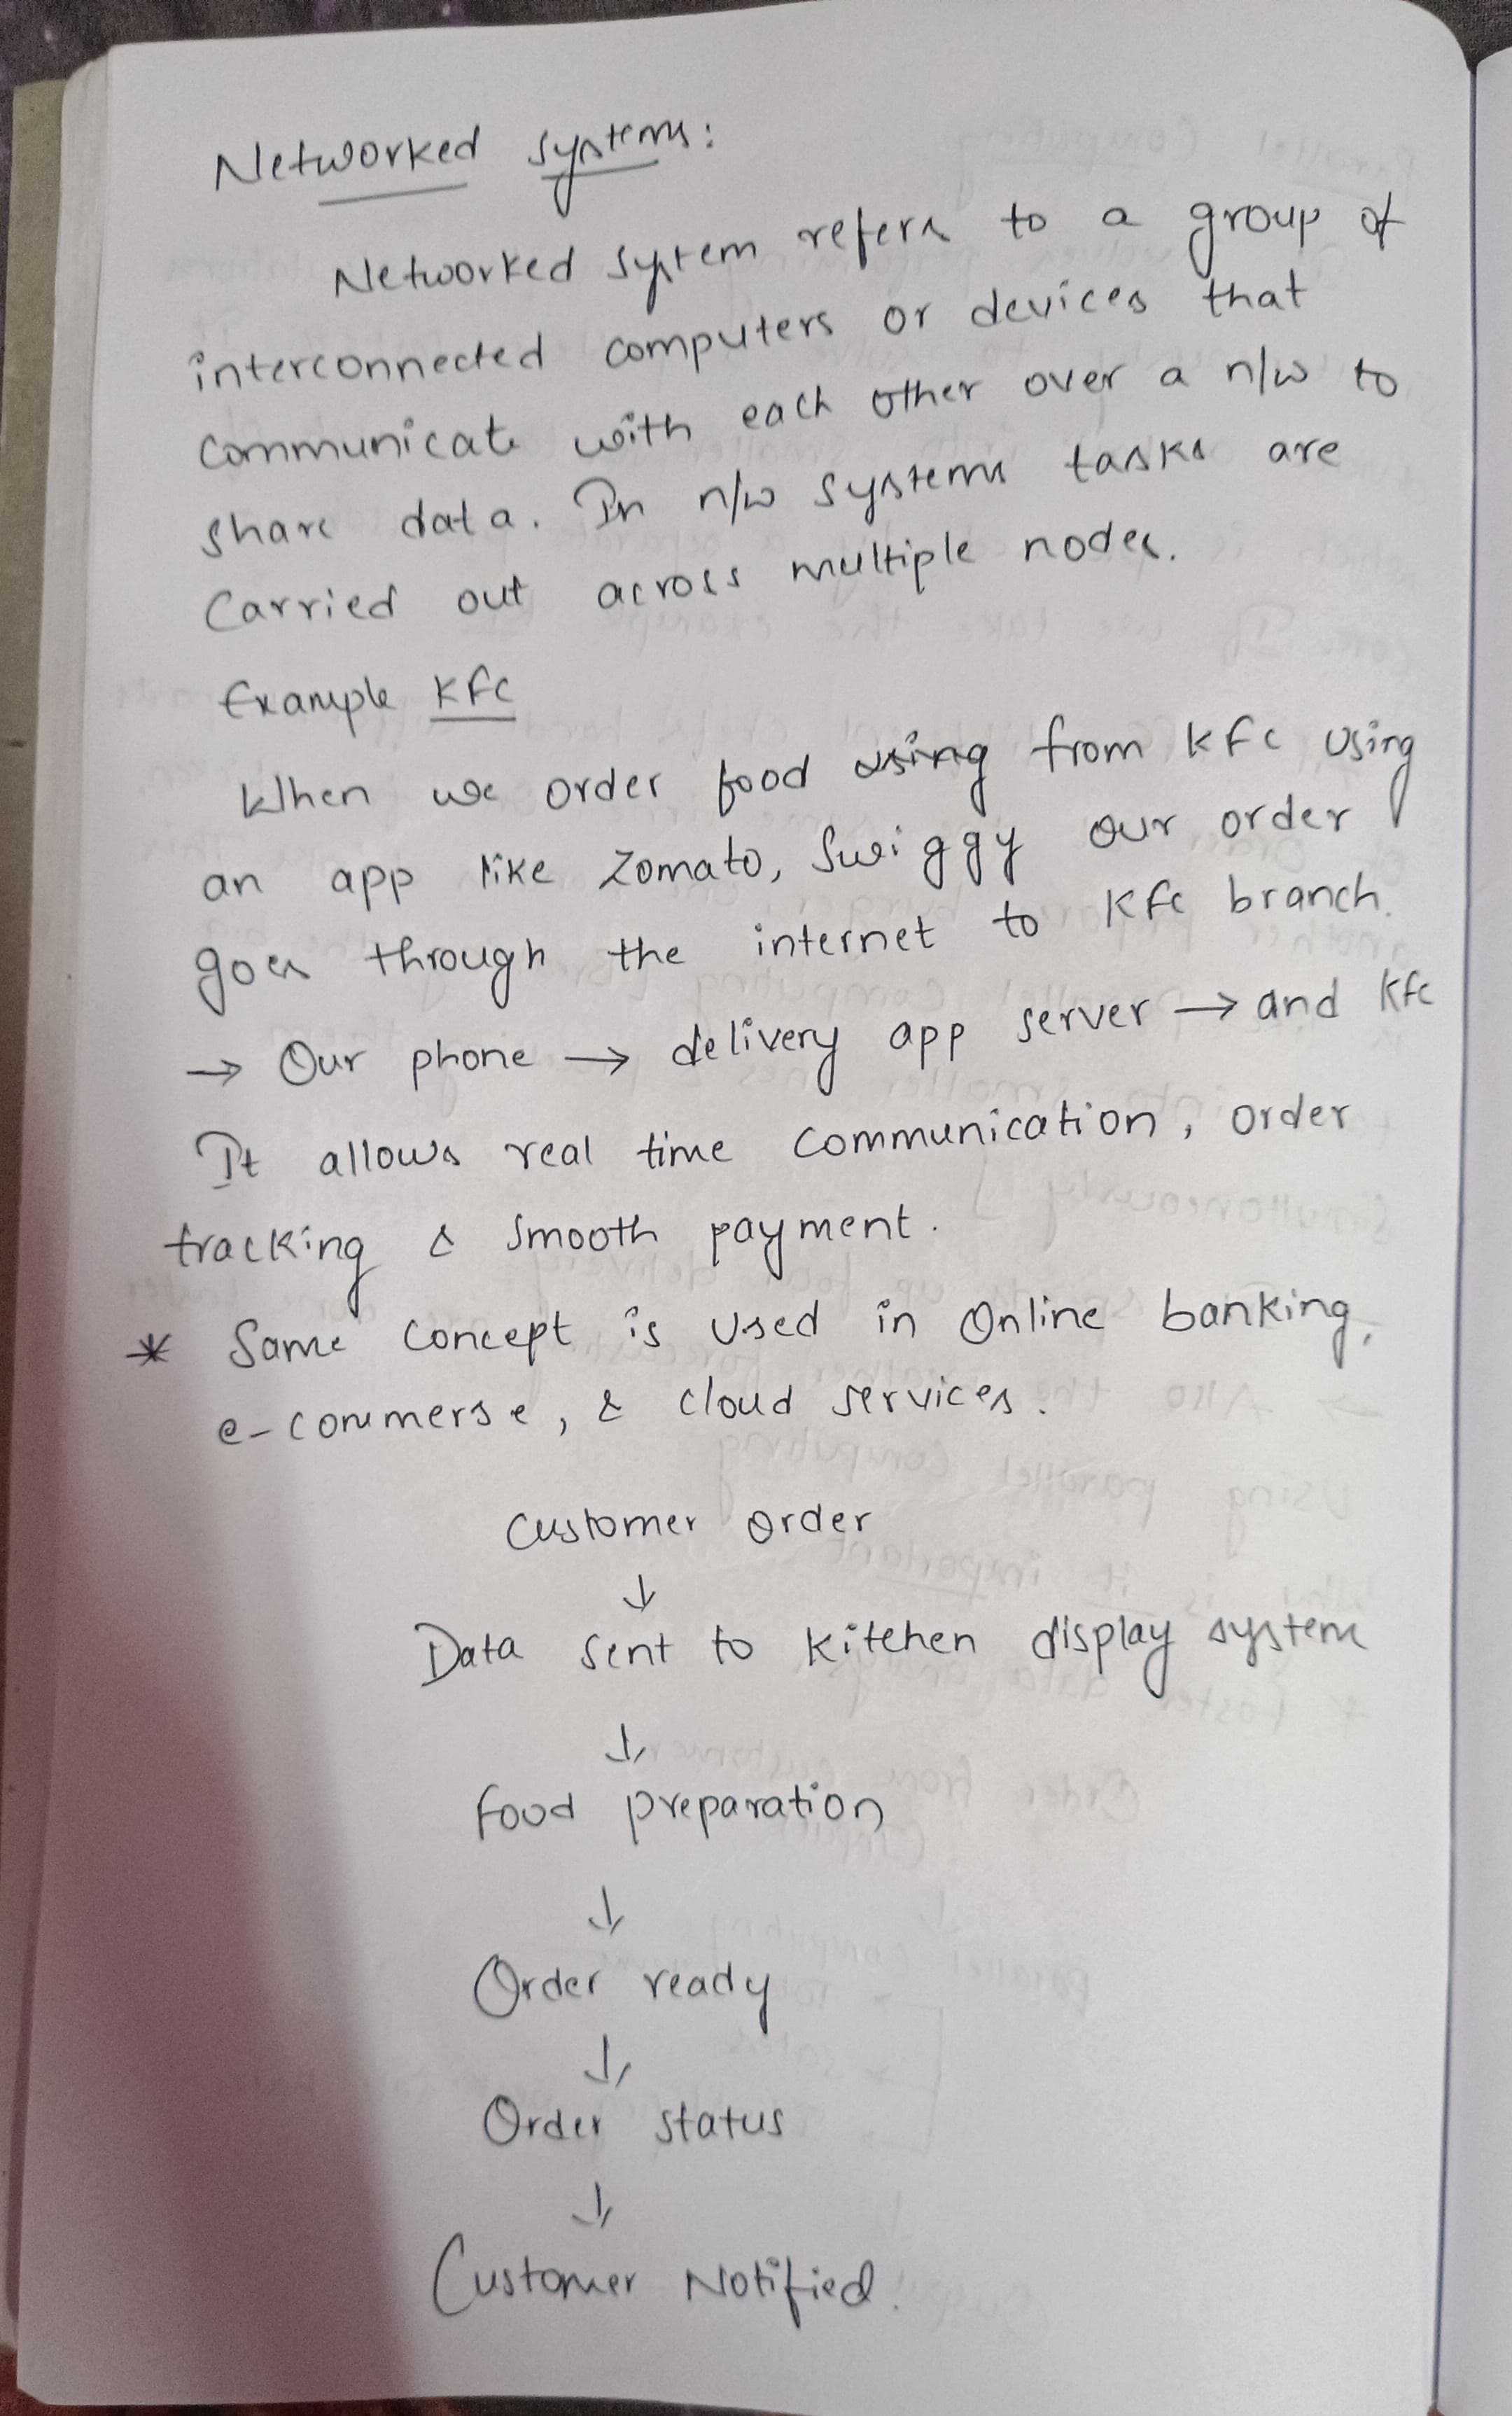 Networked systems:
Networked system refers to a group of
interconnected computers or devices that
communicate with each other over a n/w to
share data. In n/w systems tasks are
Carried out across multiple nodes.
Example KFC
When we order food using from kfc using
an app like Zomato, Swiggy our order
goes through the internet to KFC branch.
→ Our phone → delivery app server → and kfc
It allows real time communication, order
tracking & smooth payment.
* Same concept is used in Online banking,
e-commerse, & cloud services.
Customer order
↓
Data sent to kitchen display system
↓
Food preparation
↓
Order ready
↓
Order status
↓
Customer Notified.